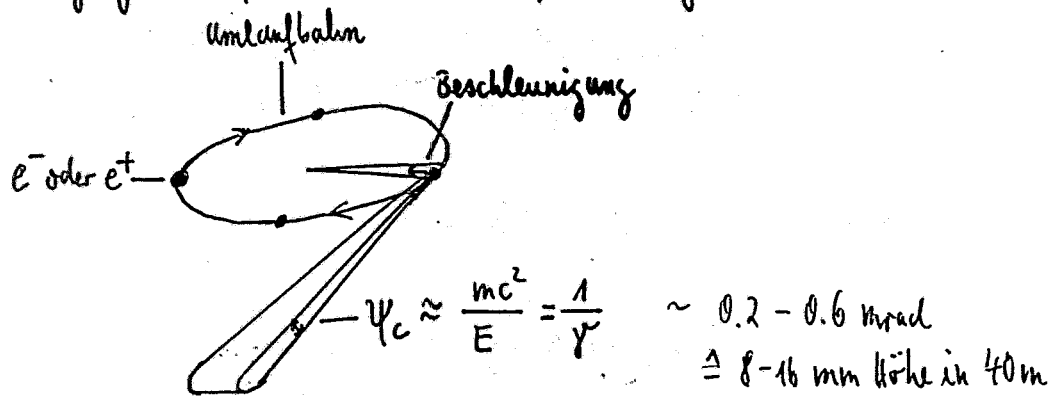 Umlaufbahn
Beschleunigung
e⁻ oder e⁺
Ψc ≈ mc²/E = 1/γ ~ 0.2 - 0.6 mrad
≙ 8-16 mm Höhe in 40m